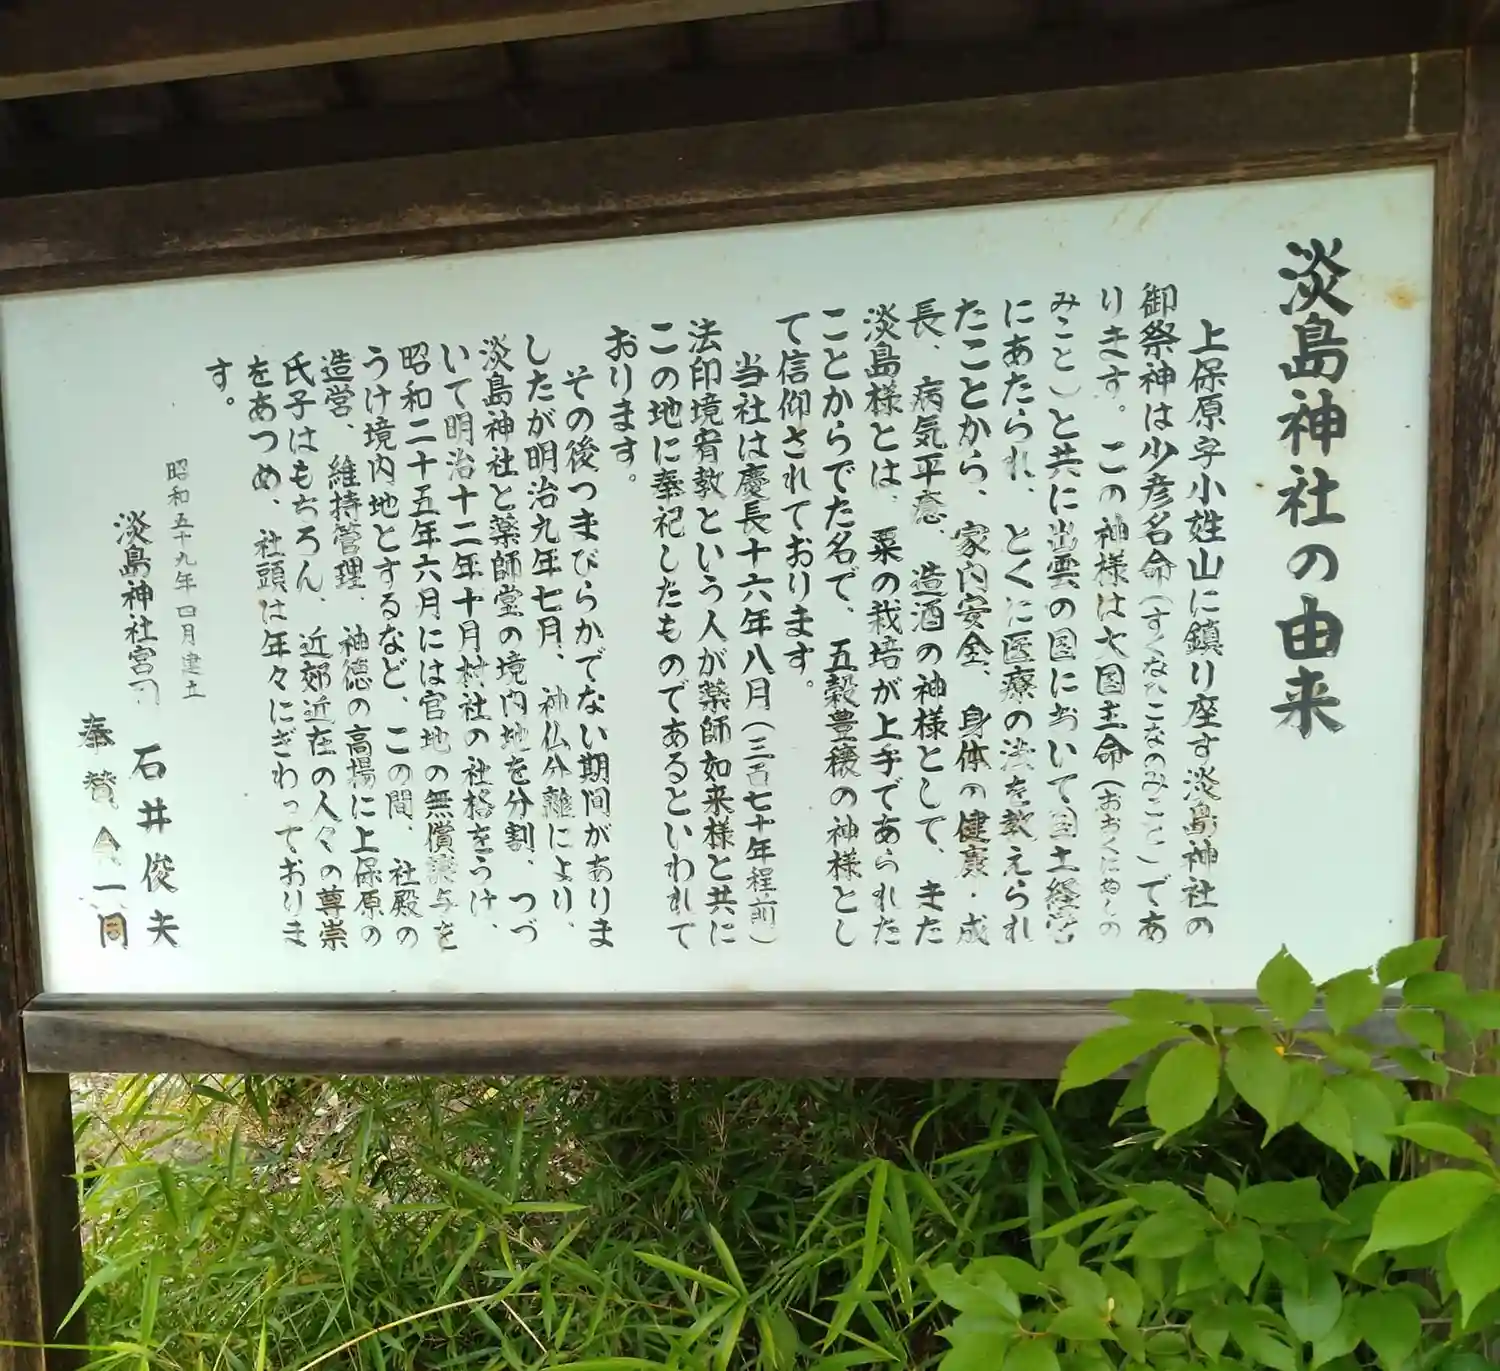 淡島神社の由来
上保原字小姓山に鎮り座す淡島神社の
御祭神は少彦名命(すくなひこなのみこと)であ
ります。この神様は大国主命(おおくにぬしの
みこと)と共に出雲の国において国土経営
にあたられ、とくに医療の法を教えられ
たことから、家内安全、身体の健康・成
長、病気平癒、造酒の神様として、また
淡島様とは、粟の栽培が上手であられた
ことからでた名で、五穀豊穣の神様とし
て信仰されております。
当社は慶長十六年八月(三百七十年程前)
法印境宥教という人が薬師如来様と共に
この地に奉祀したものであるといわれて
おります。
その後つまびらかでない期間がありま
したが明治九年七月、神仏分離により、
淡島神社と薬師堂の境内地を分割、つづ
いて明治十二年十月村社の社格をうけ、
昭和二十五年六月には官地の無償譲与を
うけ境内地とするなど、この間、社殿の
造営、維持管理、神徳の高揚に上保原の
氏子はもちろん、近郊近在の人々の尊崇
をあつめ、社頭は年々にぎわっておりま
す。
昭和五十九年四月建立
淡島神社宮司 石井俊夫
奉賛会一同